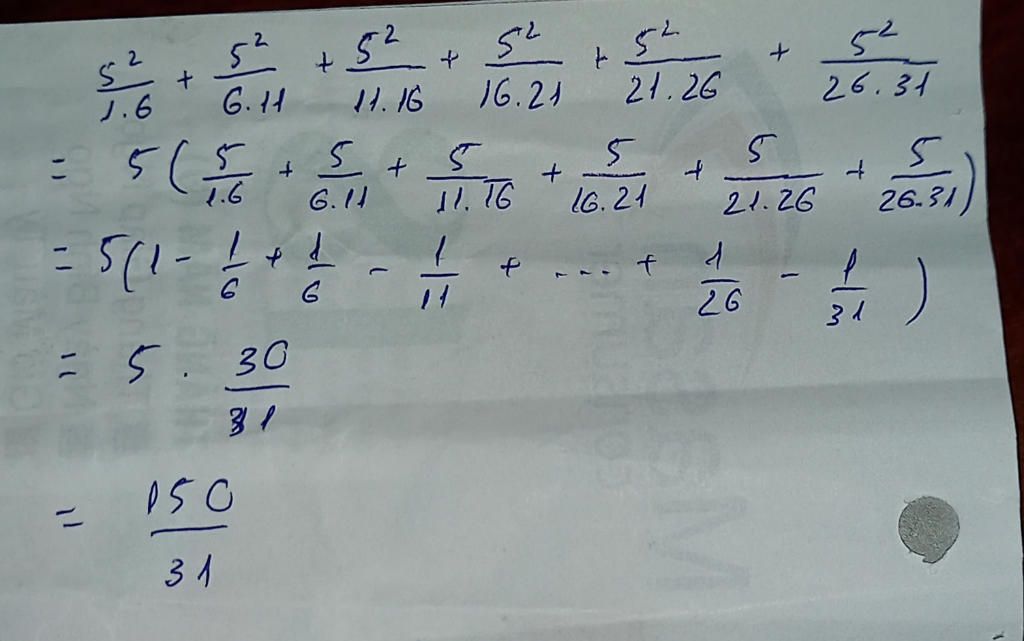 5²/1.6 + 5²/6.11 + 5²/11.16 + 5²/16.21 + 5²/21.26 + 5²/26.31
= 5(5/1.6 + 5/6.11 + 5/11.16 + 5/16.21 + 5/21.26 + 5/26.31)
= 5(1 - 1/6 + 1/6 - 1/11 + ... + 1/26 - 1/31)
= 5 . 30/31
= 150/31